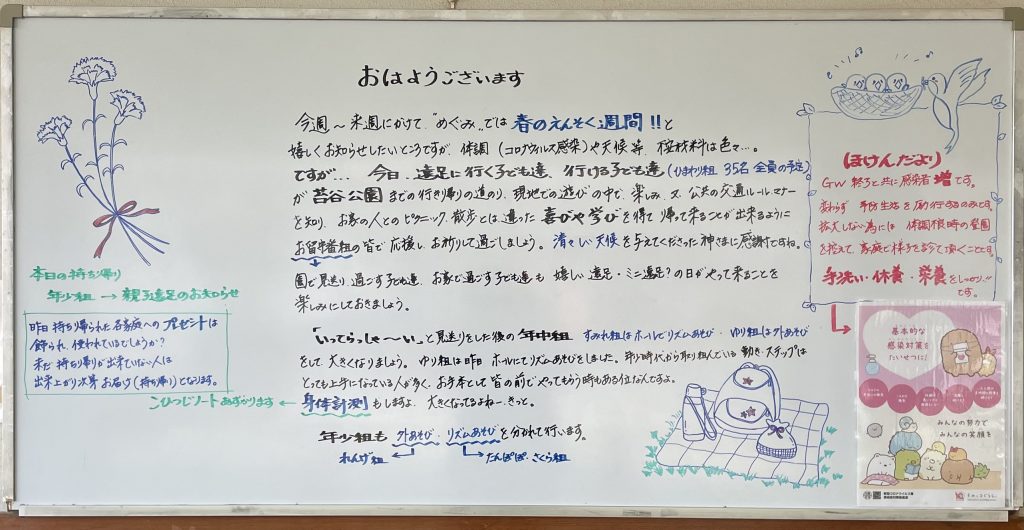 おはようございます
今週～来週にかけて、"めぐみ"では 春のえんそく週間!!と
嬉しくお知らせしたいところですが、体調(コロナウィルス感染)や天候等、検材料は色々…。
ですが… 今日、遠足に行く子ども達、行ける子ども達(ひまわり組 35名 全員の予定)
が 苔谷公園 までの行き帰りの道のり、現地での遊びの中で、楽しみ、又、公共の交通ルール、マナー
を知り、お家の人とのピクニック、散歩とは違った 喜びや学びを得て 帰って来ることが出来るように
お留番組の皆で応援し、お祈りして過ごしましょう。清々しい天候を与えてくださった神さまに感謝ですね。
園で見送り、過ごす子ども達、お家で過ごす子ども達も 嬉しい 遠足・ミニ遠足?の日がやって来ることを
楽しみにしておきましょう。
「いってらっしゃ～い」と見送りをした後の 年中組 すみれ組はホールでリズムあそび・ゆり組は外あそび
をして、大きくなりましょう。ゆり組は昨日 ホールにてリズムあそびをしました。年少時代から取り組んでいる 動き・ステップは
とっても上手になっている人が多く、お手本として皆の前でやってもらう時もある位なんですよ。
こひつじノートあずかります ← 身体計測 もしますよ、大きくなってるよねー、きっと。
年少組も 外あそび・リズムあそびを分かれて行います。
れんげ組 たんぽぽ・さくら組
本日の持ち帰り
年少組 → 親子遠足のお知らせ
昨日 持ち帰られた各家庭へのプレゼントは
飾られ、使われているでしょうか?
未だ 持ち帰りが出来ていない人は
出来上がり次第 お届け(持ち帰り)となります。
ほけんだより
GW 終了と共に感染者 増です。
変わらず 予防生活を励行するのみです。
拡大しない為には 体調不良時の登園
を控えて、家庭で様子を診て頂くことです。
手洗い・休養・栄養をしっかり!!
です。
基本的な
感染対策を
たいせつに!
みんなの努力で
みんなの笑顔を